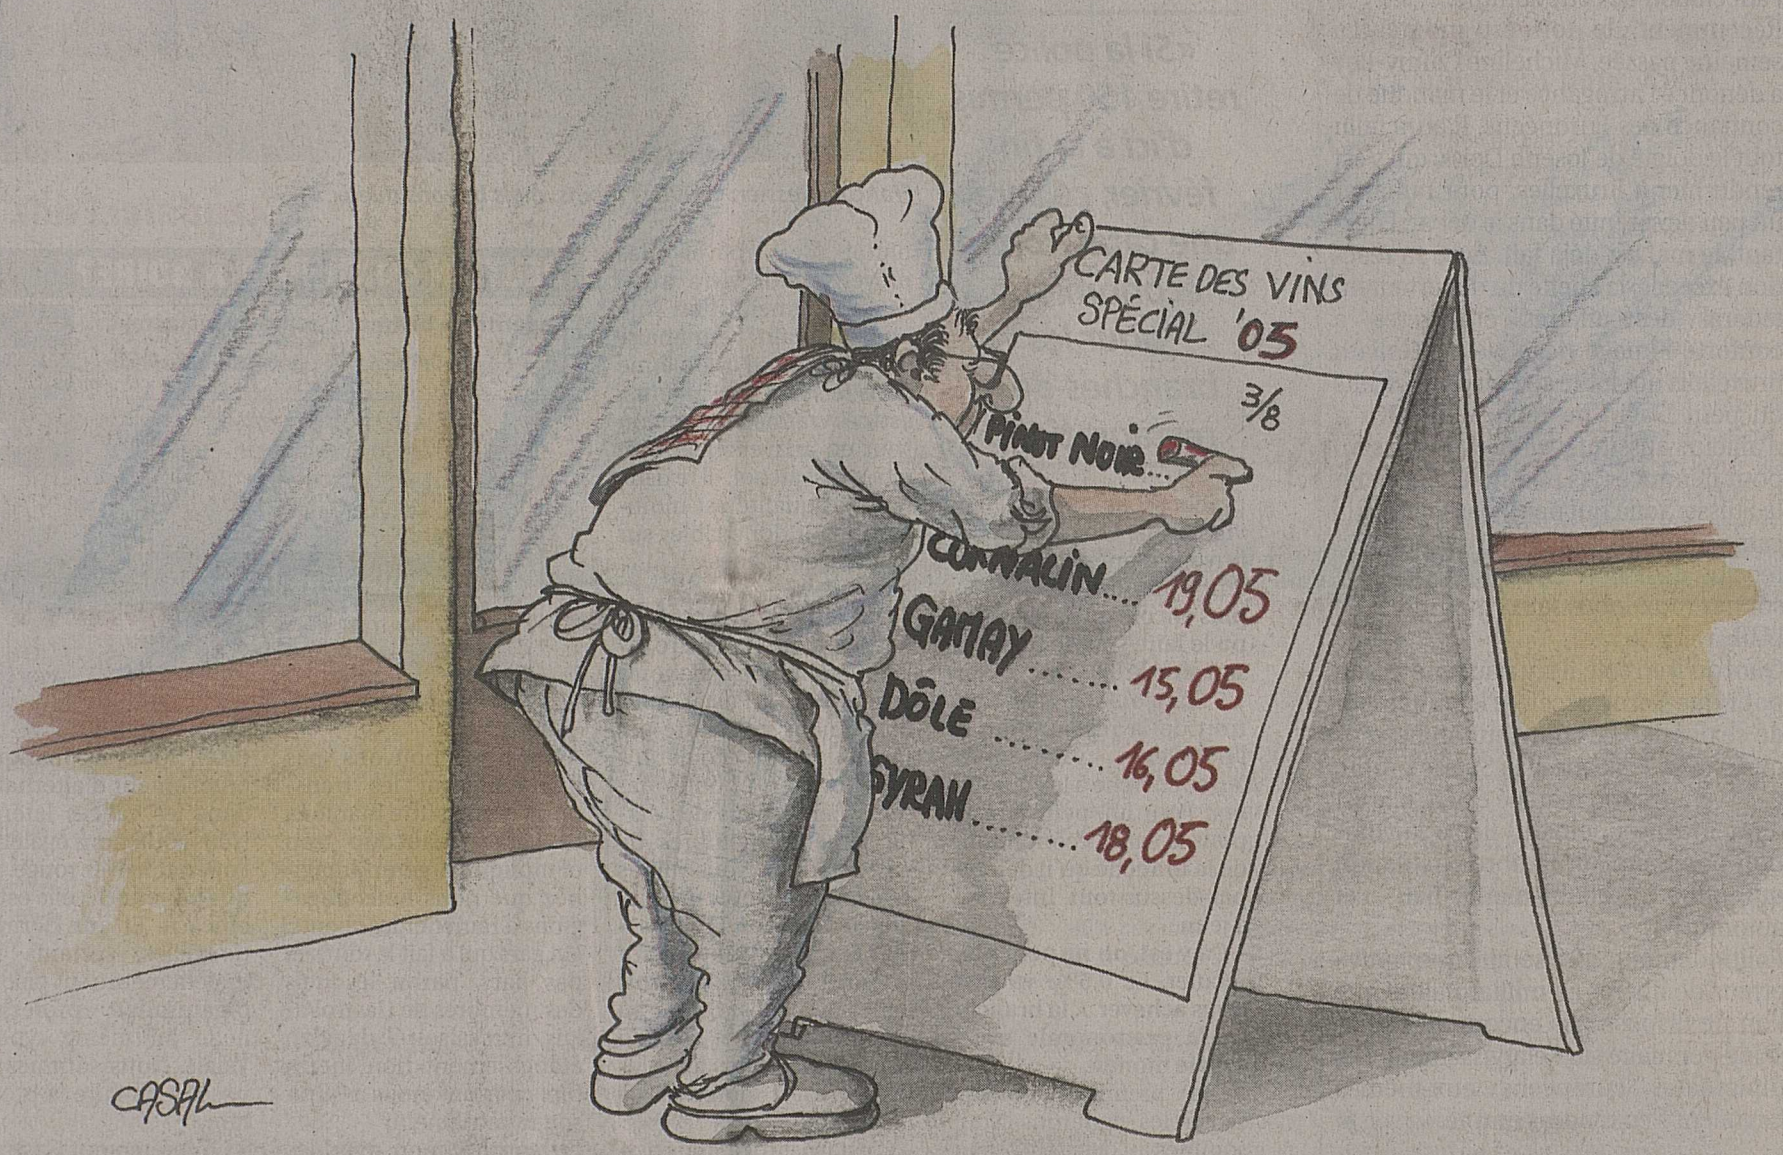 CARTE DES VINS
SPÉCIAL '05
3/8
PINOT NOIR...
CORNALIN.... 19,05
GAMAY....... 15,05
DÔLE ....... 16,05
SYRAH....... 18,05
CASAL